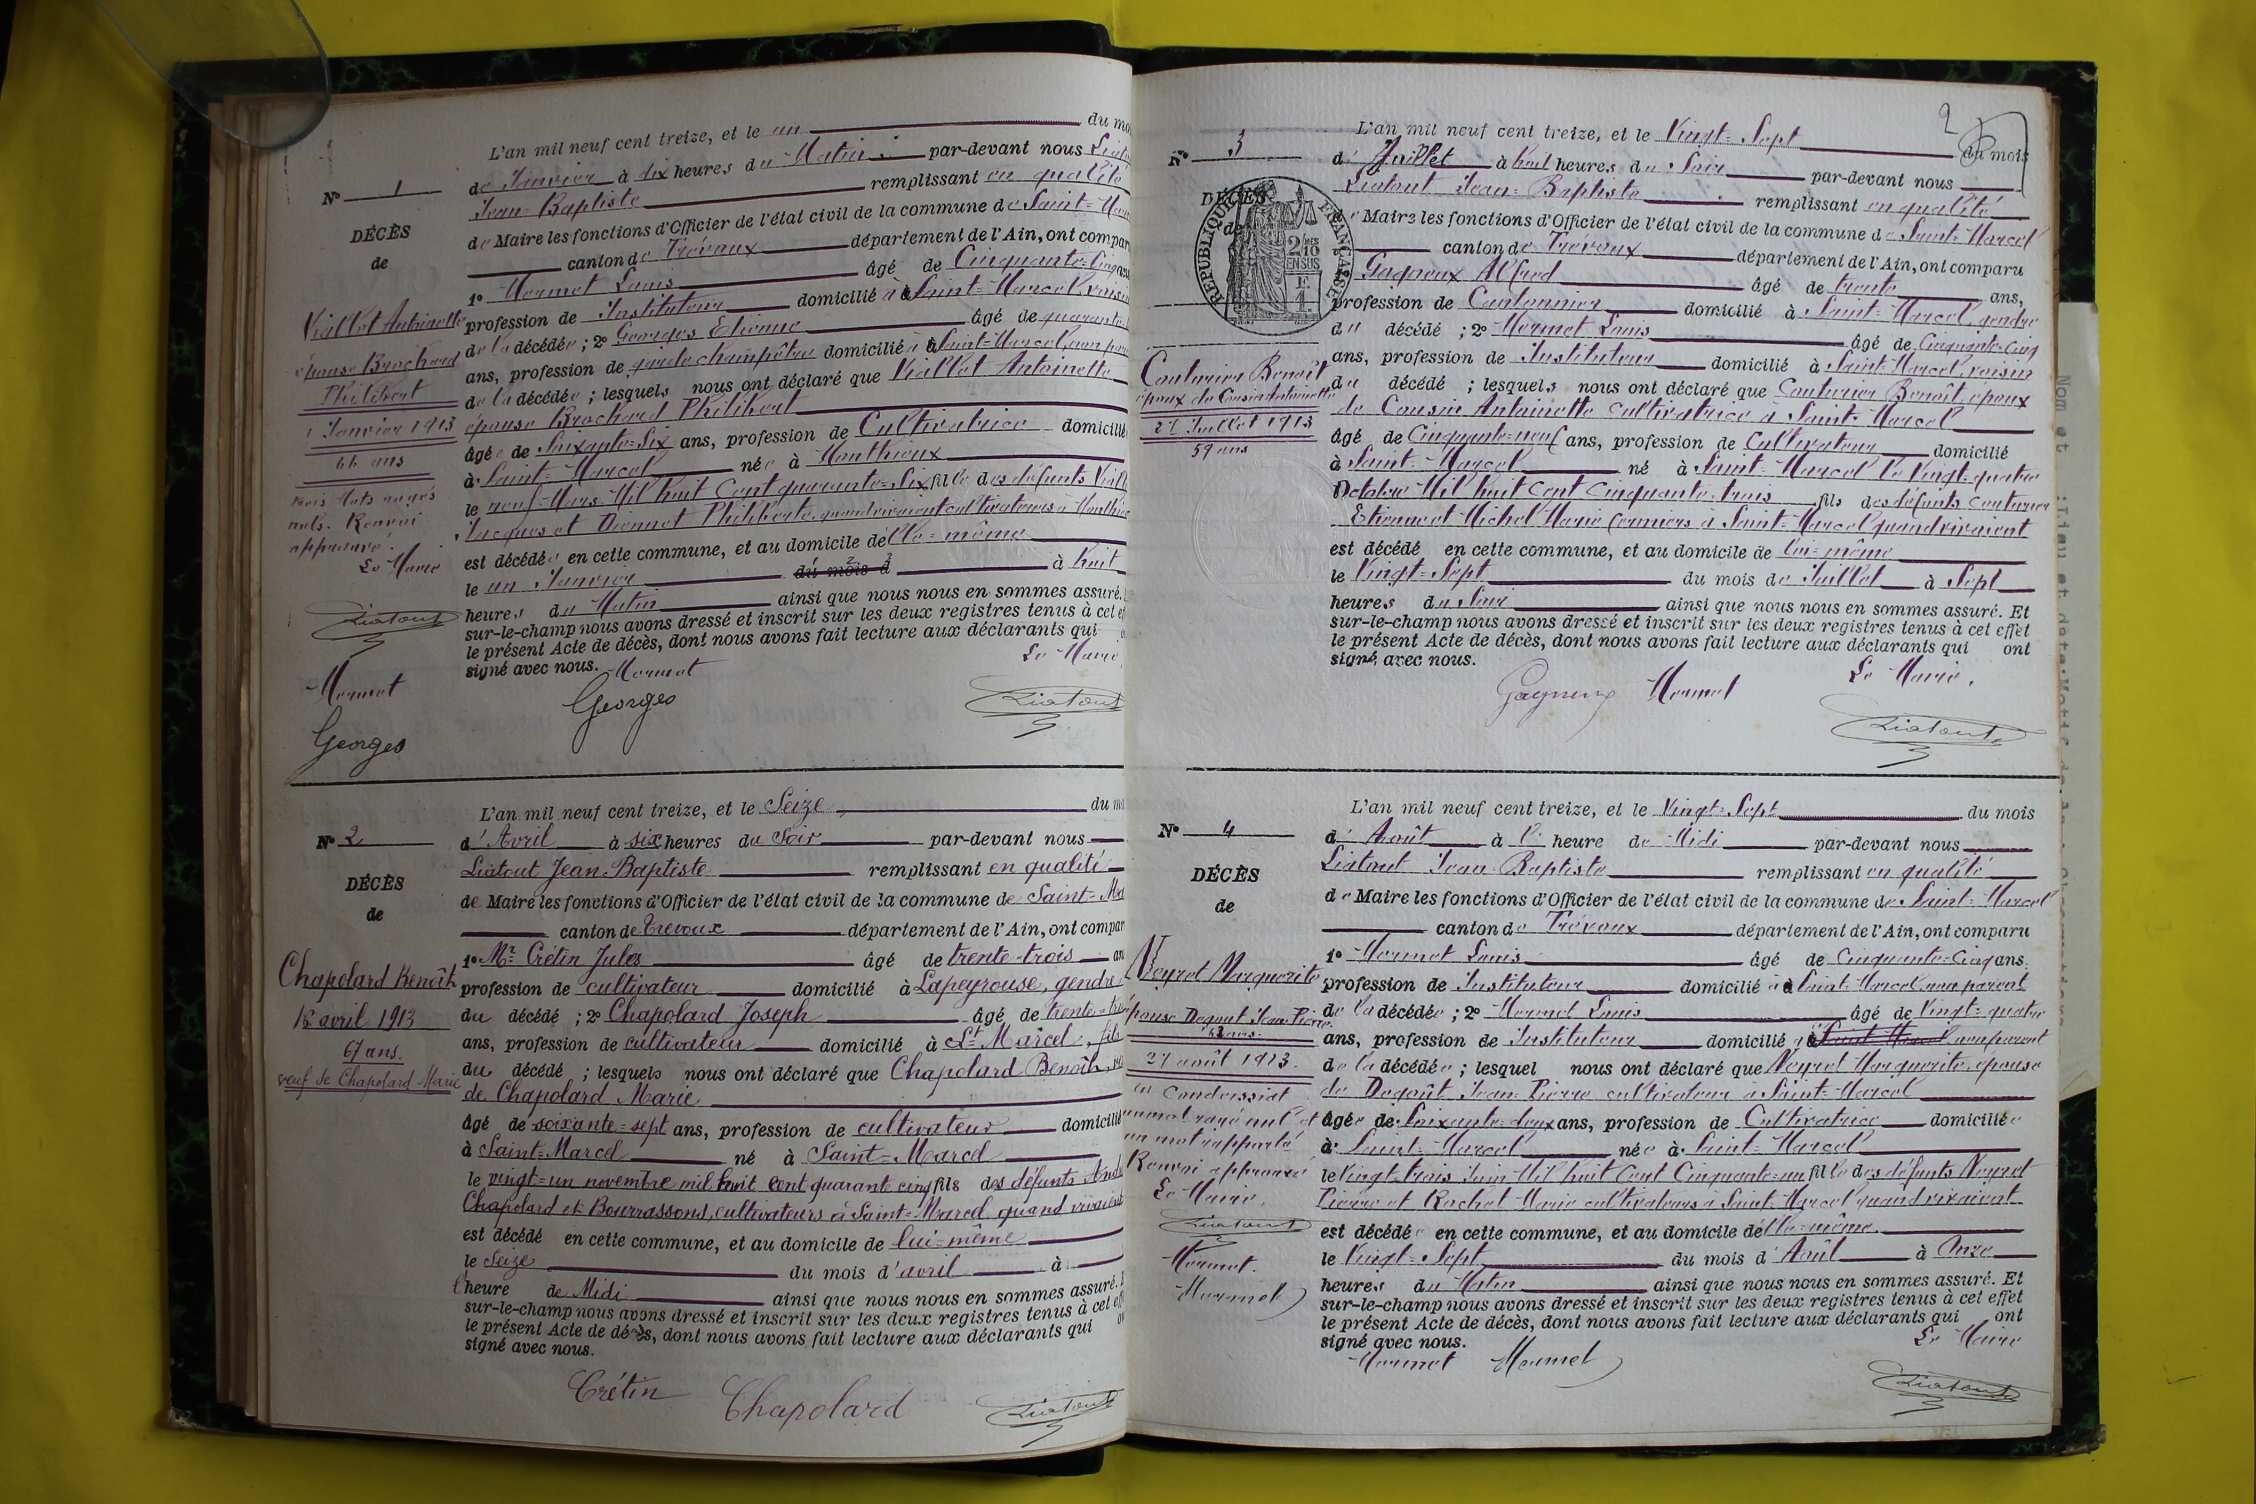 L'an mil neuf cent treize, et le un du mo
N° 1
de Janvier à dix heures du Matin par-devant nous Liatou
Jean-Baptiste remplissant en qualité
DÉCÈS
de Maire les fonctions d'Officier de l'état civil de la commune de Saint-Mar
de
canton de Trévoux département de l'Ain, ont compar
1° Mermet Louis âgé de Cinquante-Cinq ans
Viallet Antoinette
profession de Instituteur domicilié à Saint-Marcel, voisin
épouse Brochard
de la décédée ; 2° Georges Etienne âgé de quarante
Philibert
ans, profession de garde champêtre domicilié à Saint-Marcel, non pare
de la décédée ; lesquels nous ont déclaré que Viallet Antoinette
1 Janvier 1913
épouse Brochard Philibert
66 ans
âgée de Soixante-Six ans, profession de Cultivatrice domicilié
à Saint-Marcel née à Monthieux
trois mots rayés
le neuf Mars Mil huit Cent quarante-Six fille des défunts Viall
nuls. Renvoi
Jacques et Philiberte, quand vivaient cultivateurs à Monthieu
approuvé.
est décédée en cette commune, et au domicile d'elle-même
Le Maire
le un Janvier du mois d à huit
heures du Matin ainsi que nous nous en sommes assuré.
Liatout
sur-le-champ nous avons dressé et inscrit sur les deux registres tenus à cet ef
le présent Acte de décès, dont nous avons fait lecture aux déclarants qui
signé avec nous.
Le Maire,
Mermet
Mermet
Georges
Liatout
Georges
L'an mil neuf cent treize, et le Seize du mo
N° 2
d'Avril à six heures du Soir par-devant nous
Liatout Jean Baptiste remplissant en qualité
DÉCÈS
de Maire les fonctions d'Officier de l'état civil de la commune de Saint-Ma
de
canton de Trevoux département de l'Ain, ont compar
1° Mr Crétin Jules âgé de trente-trois an
Chapolard Benoît
profession de cultivateur domicilié à Lapeyrouse, gendre
16 avril 1913
du décédé ; 2° Chapolard Joseph âgé de trente-
67 ans.
ans, profession de cultivateur domicilié à St Marcel, fils
veuf de Chapolard Marie
du décédé ; lesquels nous ont déclaré que Chapolard Benoît,
de Chapolard Marie
âgé de soixante-sept ans, profession de cultivateur domicilié
à Saint-Marcel né à Saint-Marcel
le vingt-un novembre mil huit cent quarante cinq fils des défunts
Chapolard et Bourrassons, cultivateurs à Saint-Marcel, quand vivaient
est décédé en cette commune, et au domicile de lui-même
le Seize du mois d'avril à
l'heure de Midi ainsi que nous nous en sommes assuré.
sur-le-champ nous avons dressé et inscrit sur les deux registres tenus à cet eff
le présent Acte de décès, dont nous avons fait lecture aux déclarants qui
signé avec nous.
Crétin Chapolard Liatout
2
L'an mil neuf cent treize, et le Vingt-Sept du mois
N° 3
de Juillet à huit heures du Soir par-devant nous
Liatout Jean-Baptiste remplissant en qualité
DÉCÈS
de Maire les fonctions d'Officier de l'état civil de la commune de Saint-Marcel
de
RÉPUBLIQUE FRANÇAISE
canton de Trévoux département de l'Ain, ont comparu
Gagneux Alfred âgé de trente ans,
profession de Cantonnier domicilié à Saint-Marcel, gendre
du décédé ; 2° Mermet Louis âgé de Cinquante-Cinq
Couturier Benoît
ans, profession de Instituteur domicilié à Saint-Marcel, voisin
époux de Cousin Antoinette
du décédé ; lesquels nous ont déclaré que Couturier Benoît, époux
de Cousin Antoinette cultivatrice à Saint-Marcel
27 Juillet 1913
âgé de Cinquante-neuf ans, profession de Cultivateur domicilié
59 ans
à Saint-Marcel né à Saint-Marcel le Vingt-quatre
Octobre Mil huit Cent Cinquante-trois fils des défunts Couturier
Etienne et Michel Marie fermiers à Saint-Marcel quand vivaient
est décédé en cette commune, et au domicile de lui-même
le Vingt-Sept du mois de Juillet à Sept
heures du Soir ainsi que nous nous en sommes assuré. Et
sur-le-champ nous avons dressé et inscrit sur les deux registres tenus à cet effet
le présent Acte de décès, dont nous avons fait lecture aux déclarants qui ont
signé avec nous.
Le Maire,
Gagneux Mermet
Liatout
L'an mil neuf cent treize, et le Vingt-Sept du mois
N° 4
d'Août à l' heure de Midi par-devant nous
Liatout Jean-Baptiste remplissant en qualité
DÉCÈS
de Maire les fonctions d'Officier de l'état civil de la commune de Saint-Marcel
de
canton de Trévoux département de l'Ain, ont comparu
1° Mermet Louis âgé de Cinquante-Cinq ans.
Neyret Marguerite
profession de Instituteur domicilié à Saint-Marcel, non parent
épouse Degout Jean Pierre
de la décédée ; 2° Mermet Louis âgé de Vingt-quatre
62 ans
ans, profession de Instituteur domicilié à Saint-Marcel non parent
27 août 1913.
de la décédée ; lesquel nous ont déclaré que Neyret Marguerite, épouse
à Condeissiat
de Degoût Jean-Pierre cultivateur à Saint-Marcel
un mot rayé nul et
âgée de Soixante-deux ans, profession de Cultivatrice domiciliée
un mot rapporté
à Saint-Marcel née à Saint-Marcel
Renvoi approuvé
le Vingt-trois Juin Mil huit Cent Cinquante-un fille des défunts Neyret
Le Maire,
Pierre et Rochet Marie cultivateurs à Saint-Marcel quand vivaient
Liatout
est décédée en cette commune, et au domicile d'elle-même.
Mermet.
le Vingt-Sept du mois d'Août à Onze
Mermet
heures du Matin ainsi que nous nous en sommes assuré. Et
sur-le-champ nous avons dressé et inscrit sur les deux registres tenus à cet effet
le présent Acte de décès, dont nous avons fait lecture aux déclarants qui ont
signé avec nous.
Le Maire
Mermet Mermet
Liatout